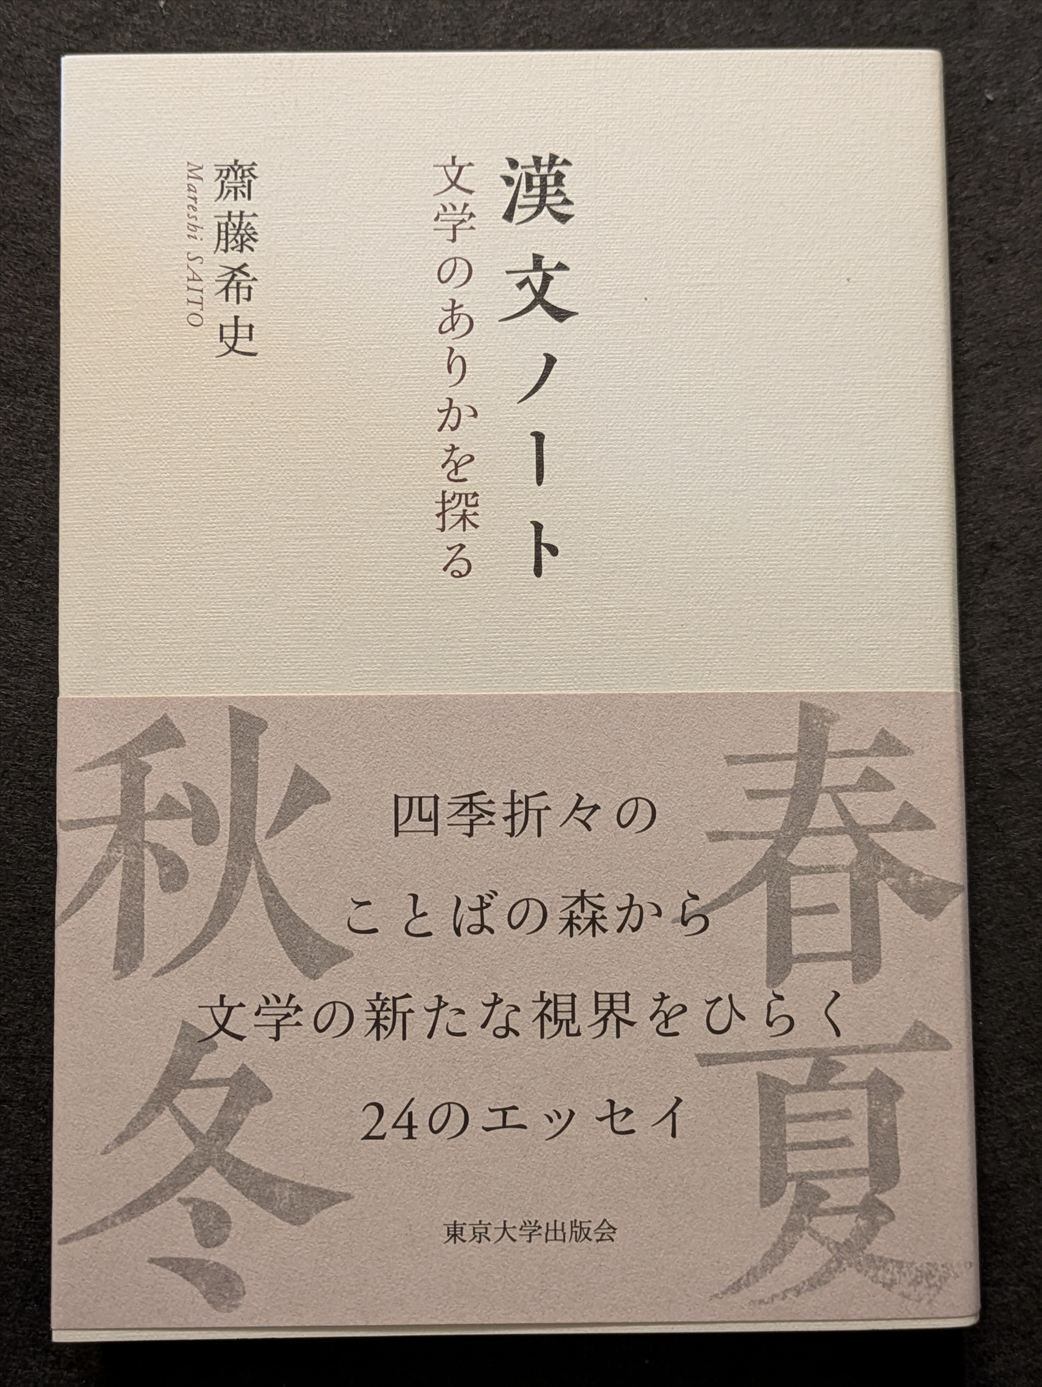 漢文ノート
文学のありかを探る
齋藤希史
Mareshi SAITO
春夏
秋冬
四季折々の
ことばの森から
文学の新たな視界をひらく
24のエッセイ
東京大学出版会